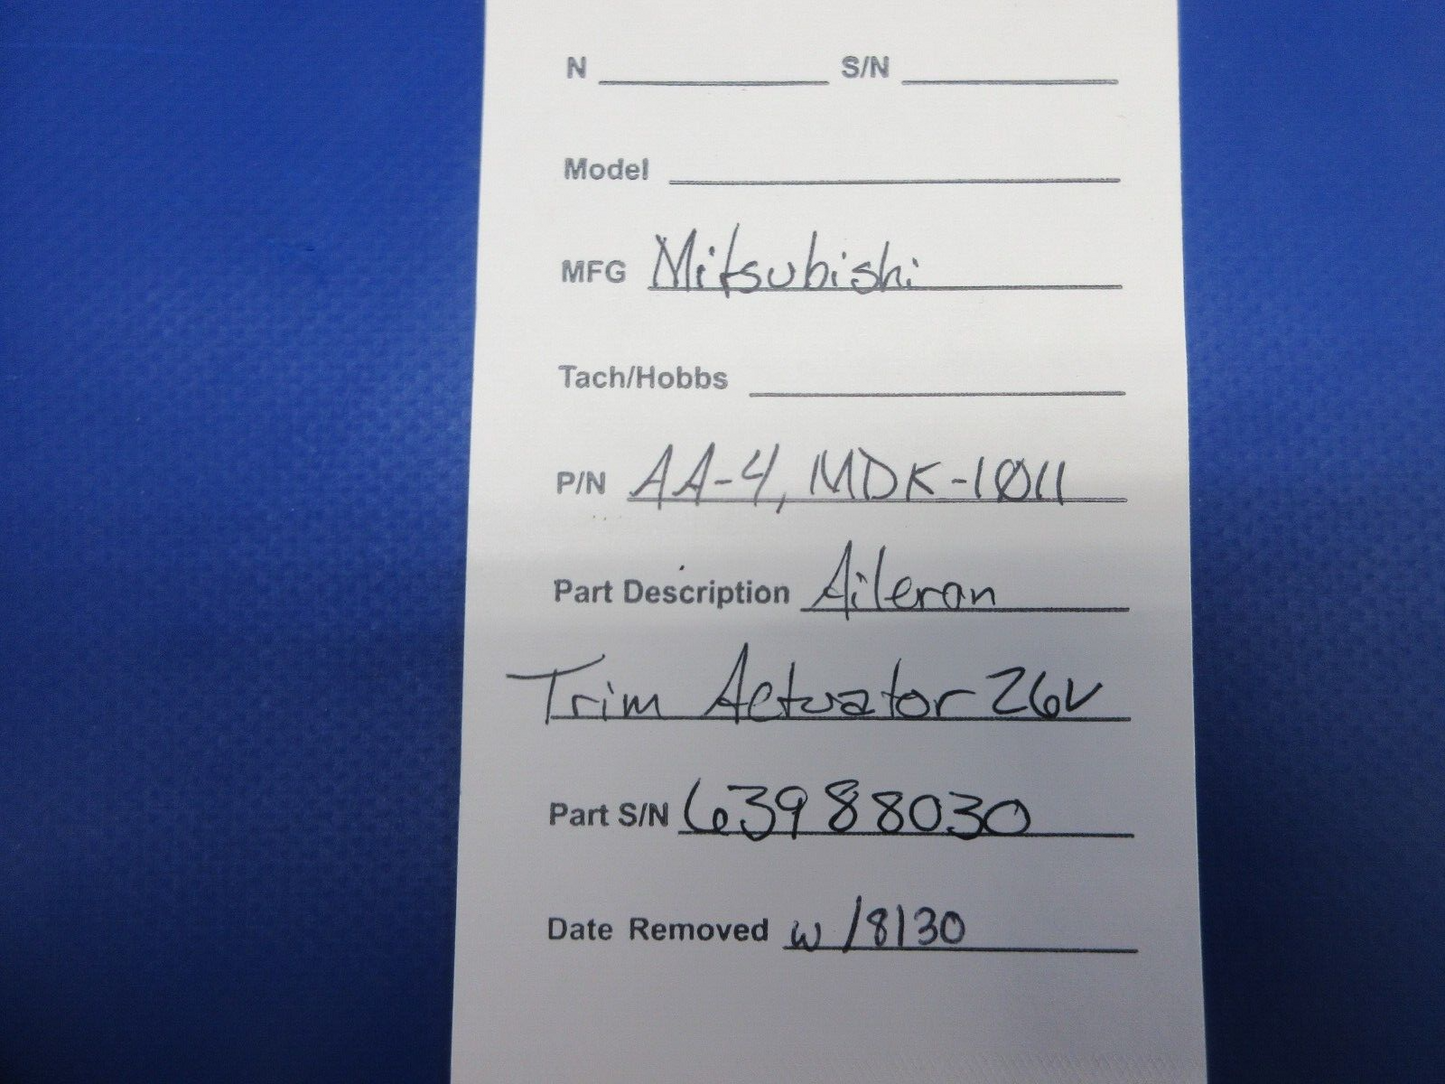 N S/N
Model
MFG Mitsubishi
Tach/Hobbs
P/N AA-4, MDK-1011
Part Description Aileron
Trim Actuator 26V
Part S/N 63988030
Date Removed w/8130